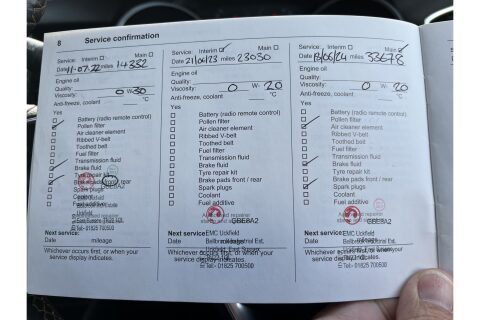 8 Service confirmation
Service: Interim Main
Date 11-07-22 miles 14382
Engine oil
Quality:
Viscosity: 0 W-30
Anti-freeze, coolant °C
Yes
Battery (radio remote control)
Pollen filter
Air cleaner element
Ribbed V-belt
Toothed belt
Fuel filter
Transmission fluid
Brake fluid
Tyre repair kit
Brake pads front / rear
Spark plugs
Coolant
Fuel additive
Next service:
Date mileage
Whichever occurs first, or when your
service display indicates.
Tel:- 01825 700500
Service: Interim Main
Date 21/06/23 miles 23030
Engine oil
Quality:
Viscosity: 0 W- 20
Anti-freeze, coolant °C
Yes
Battery (radio remote control)
Pollen filter
Air cleaner element
Ribbed V-belt
Toothed belt
Fuel filter
Transmission fluid
Brake fluid
Tyre repair kit
Brake pads front / rear
Spark plugs
Coolant
Fuel additive
GBE8A2
Next service: EMC Uckfield
Date mileage
Whichever occurs first, or when your
service display indicates.
Tel:- 01825 700500
Service: Interim Main
Date miles 33678
Engine oil
Quality:
Viscosity: 0 W- 20
Anti-freeze, coolant °C
Yes
Battery (radio remote control)
Pollen filter
Air cleaner element
Ribbed V-belt
Toothed belt
Fuel filter
Transmission fluid
Brake fluid
Tyre repair kit
Brake pads front / rear
Spark plugs
Coolant
Fuel additive
GBE8A2
Next service: EMC Uckfield
Date mileage
Whichever occurs first, or when your
service display indicates.
Tel:- 01825 700500